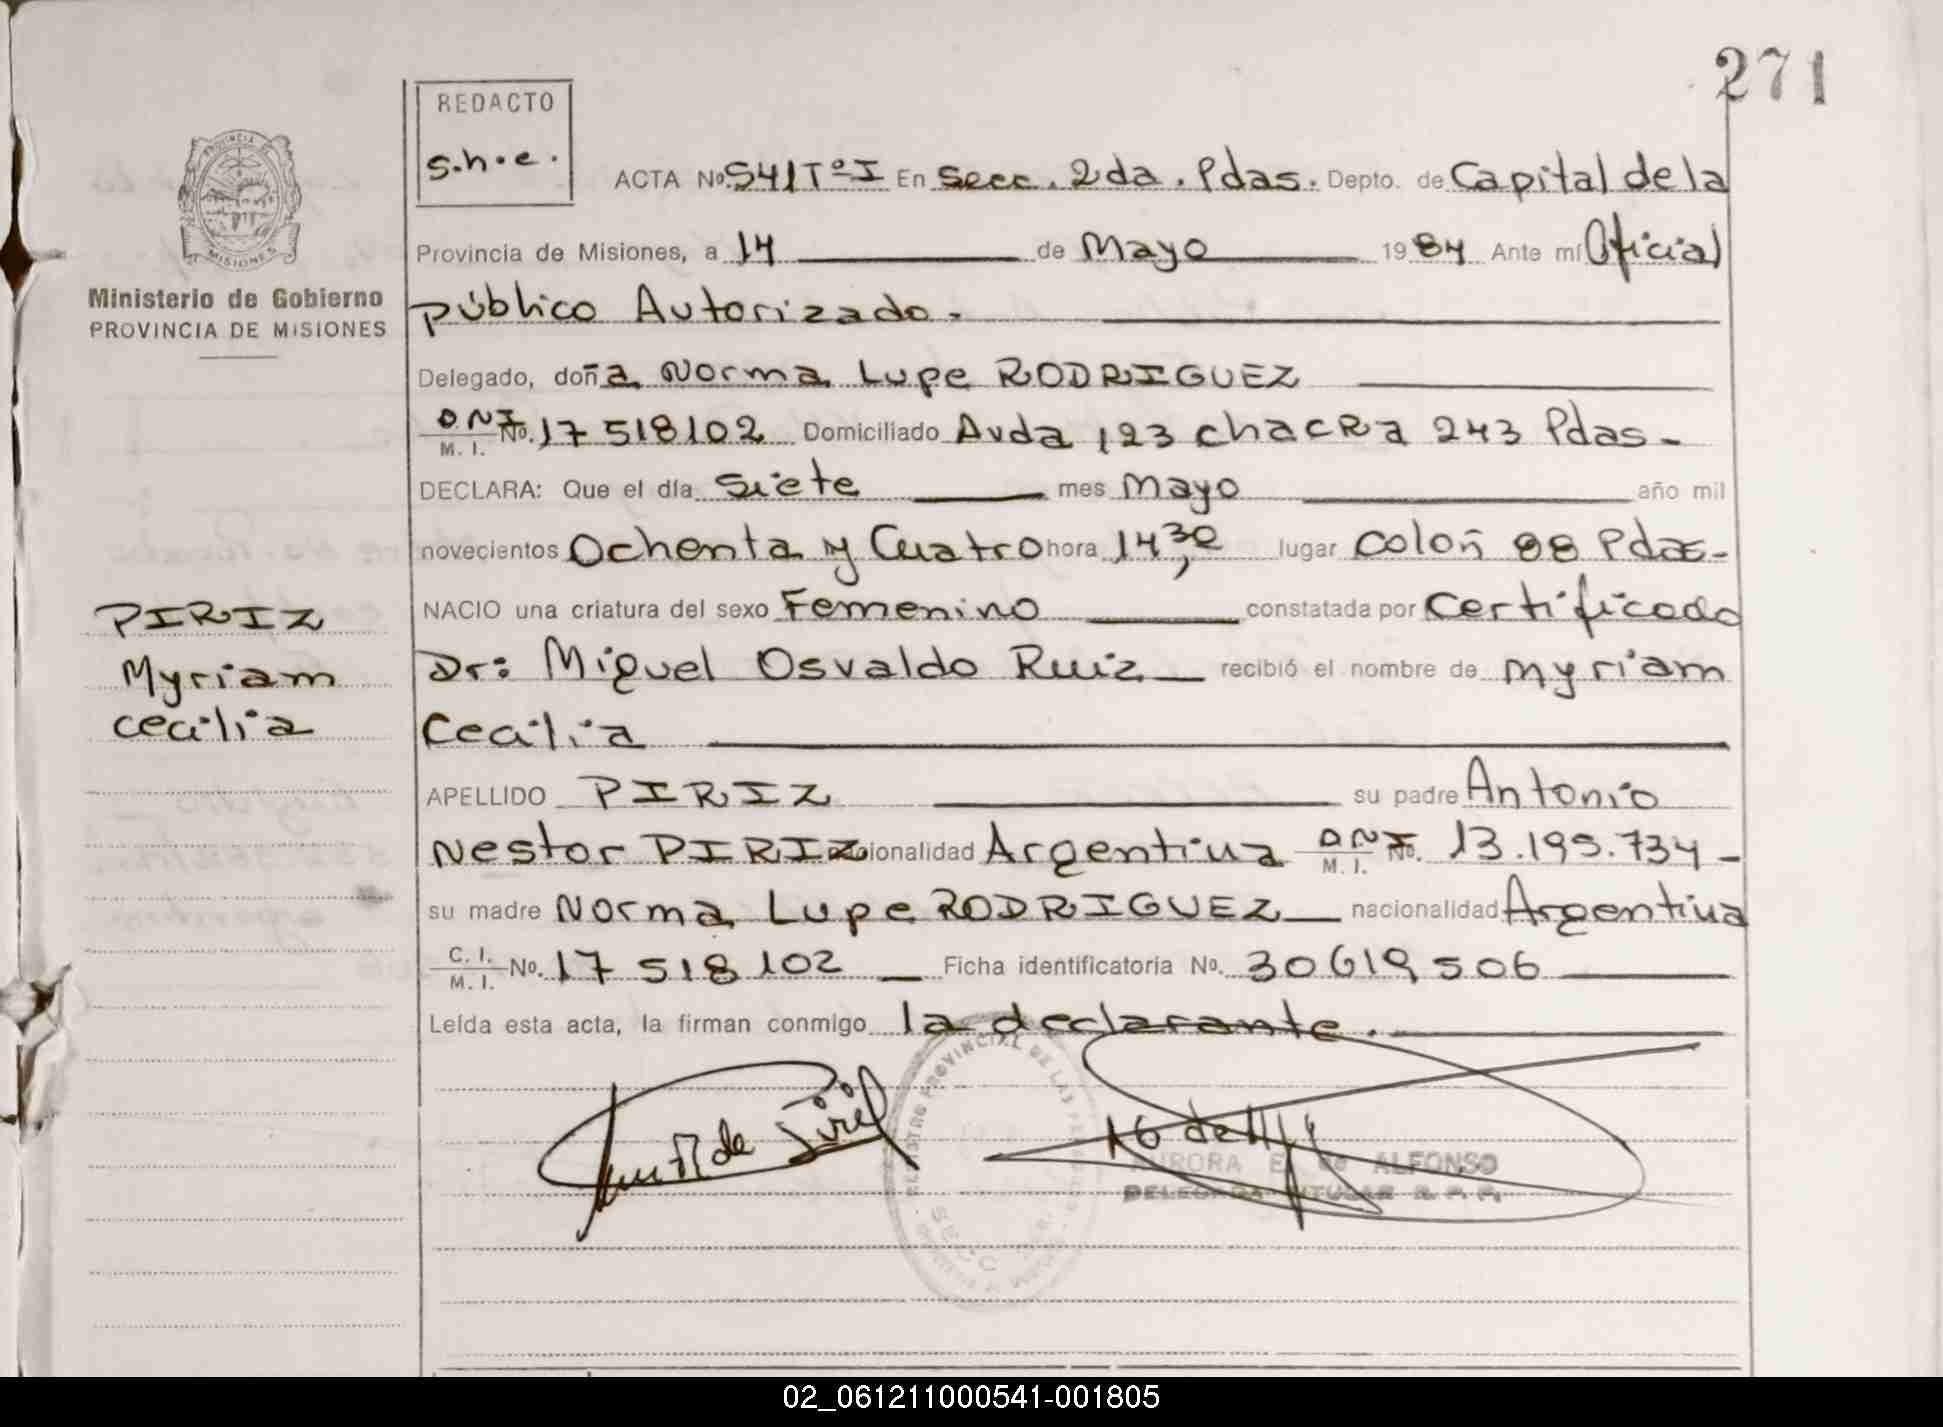 271
REDACTO
s.h.e.
ACTA No. 541 Tº I En Secc. 2da. Pdas. Depto. de Capital de la
Provincia de Misiones, a 14 de Mayo 1984 Ante mí Oficial
Público Autorizado.
PROVINCIA DE
MISIONES
Ministerio de Gobierno
PROVINCIA DE MISIONES
Delegado, doña Norma Lupe RODRIGUEZ
DNI M. I. No. 17 518102 Domiciliado Avda 123 chacRa 243 Pdas-
DECLARA: Que el día Siete mes Mayo año mil
novecientos Ochenta y Cuatro hora 14,30 lugar Colón 88 Pdas-
NACIO una criatura del sexo Femenino constatada por Certificado
Dr: Miguel Osvaldo Ruiz recibió el nombre de Myriam
Cecilia
PIRIZ
Myriam
Cecilia
APELLIDO PIRIZ su padre Antonio
Nestor PIRIZ nacionalidad Argentina DNI M. I. No. 13.195.734-
su madre Norma Lupe RODRIGUEZ nacionalidad Argentina
C. I. M. I. No. 17 518 102 Ficha identificatoria No. 30619506
Leída esta acta, la firman conmigo la declarante.
REGISTRO PROVINCIAL DE LAS PERSONAS
AURORA E. de ALFONSO
DELEGADA TITULAR R. P. P.
02_061211000541-001805